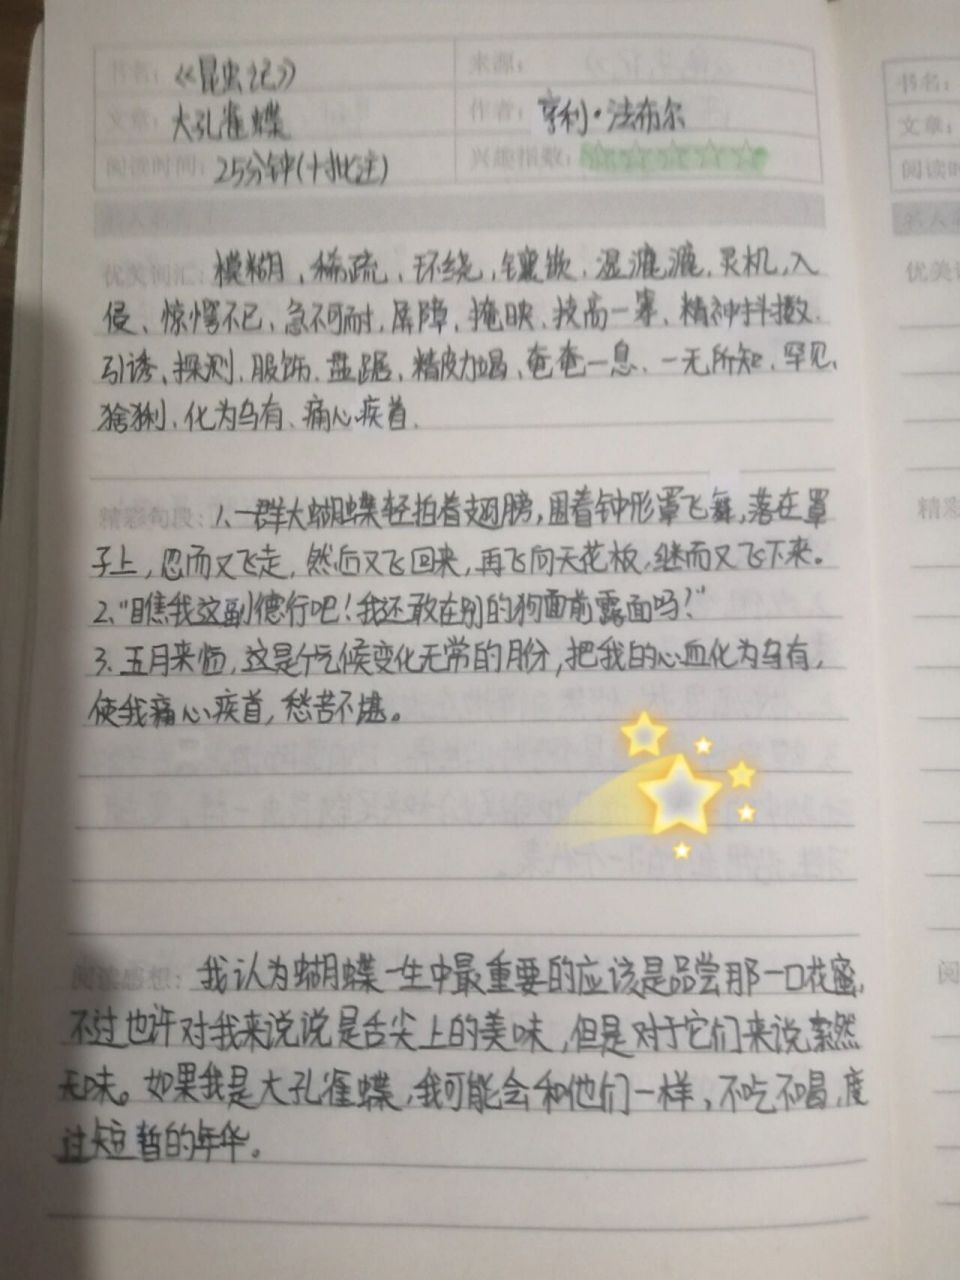 书名：《昆虫记》 来源：
文章：大孔雀蝶 作者：亨利·法布尔
阅读时间：25分钟(十批注) 兴趣指数：☆☆☆☆☆
优美词汇：模糊、稀疏、环绕、镶嵌、湿漉漉、灵机、入
侵、惊愕不已、急不可耐、屏障、掩映、技高一筹、精神抖擞、
引诱、探测、服饰、盘踞、精疲力竭、奄奄一息、一无所知、罕见、
猞猁、化为乌有、痛心疾首、
精彩句段：1、一群大蝴蝶轻拍着翅膀，围着钟形罩飞舞，落在罩
子上，忽而又飞走，然后又飞回来，再飞向天花板，继而又飞下来。
2、“瞧我这副德行吧！我还敢在别的狗面前露面吗？”
3、五月来临，这是个气候变化无常的月份，把我的心血化为乌有，
使我痛心疾首，愁苦不堪。
阅读感想：我认为蝴蝶一生中最重要的应该是品尝那一口花蜜，
不过也许对我来说说是舌尖上的美味，但是对于它们来说索然
无味。如果我是大孔雀蝶，我可能会和他们一样，不吃不喝，度
过短暂的年华。
书名：
文章：
阅读时
名人名
优美词
精彩
阅